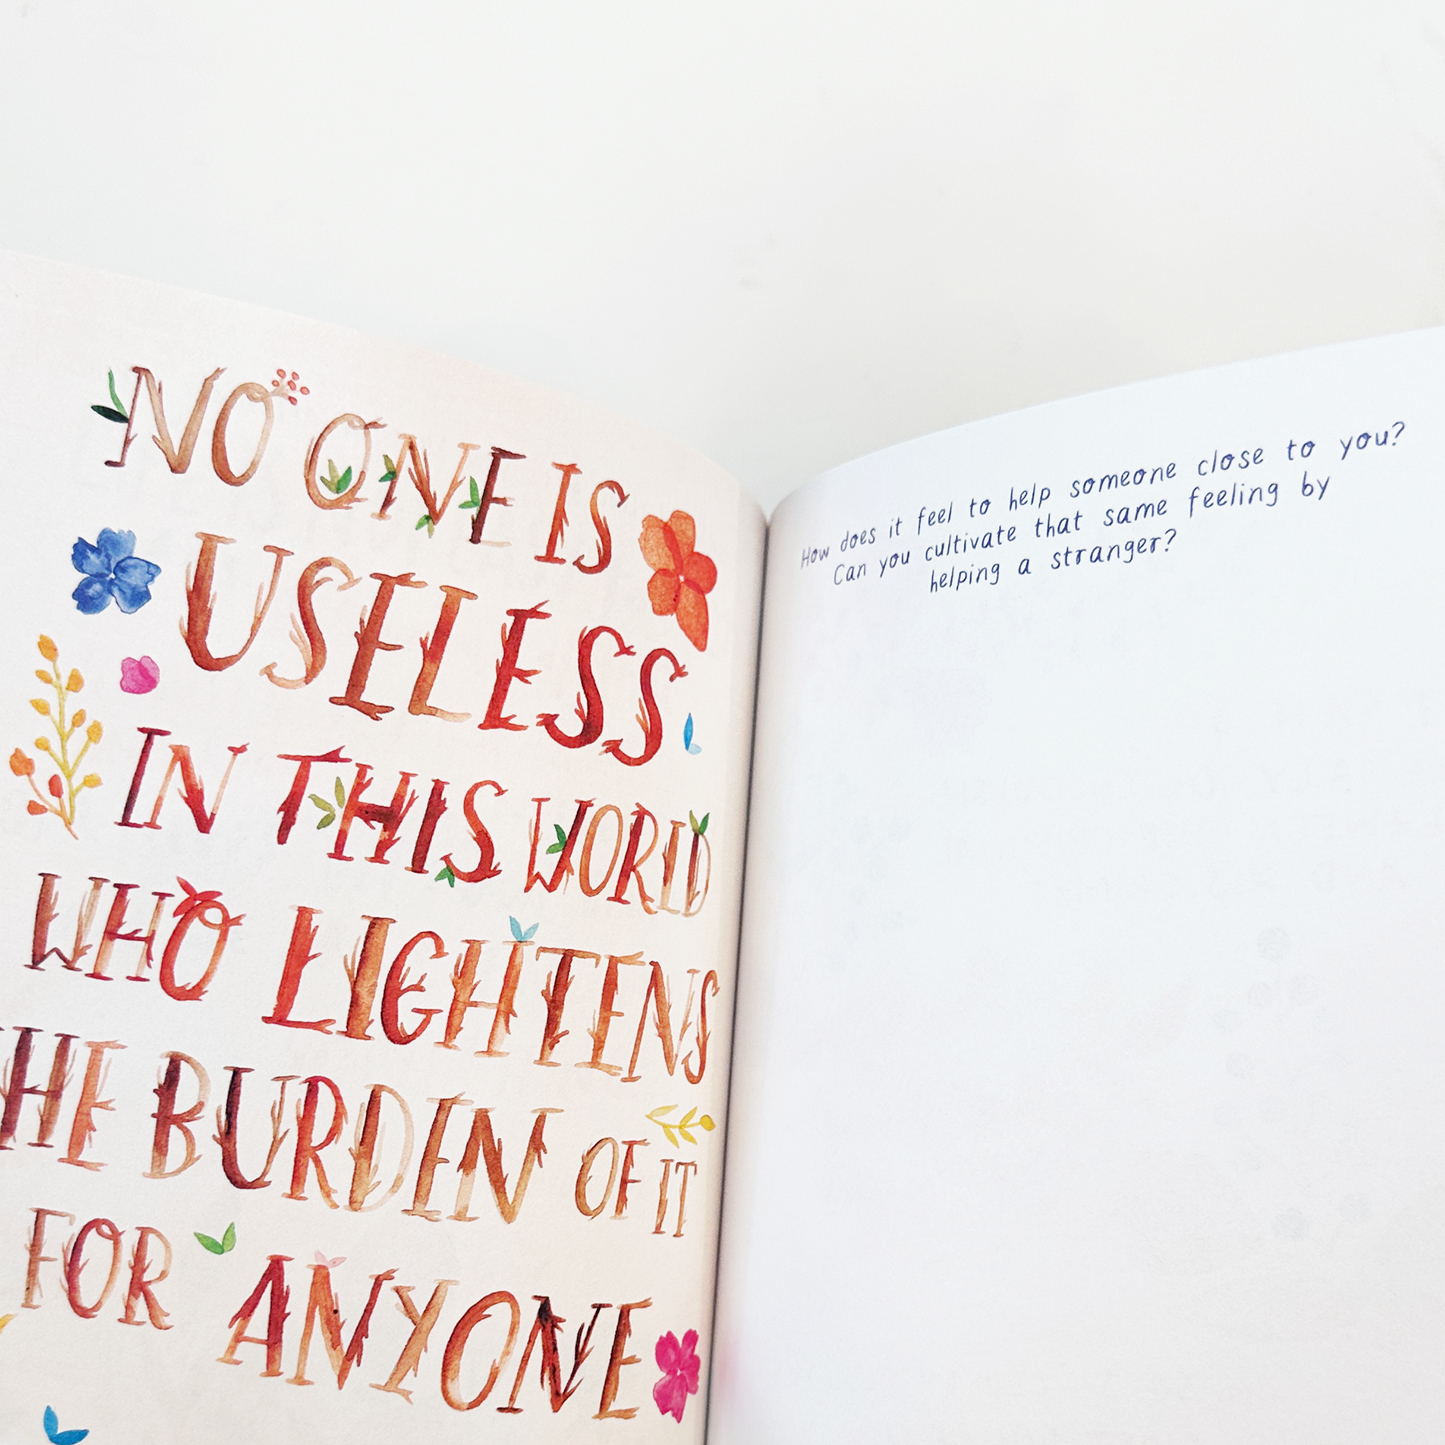 NO ONE IS
USELESS
IN THIS WORLD
WHO LIGHTENS
THE BURDEN OF IT
FOR ANYONE
How does it feel to help someone close to you?
Can you cultivate that same feeling by
helping a stranger?